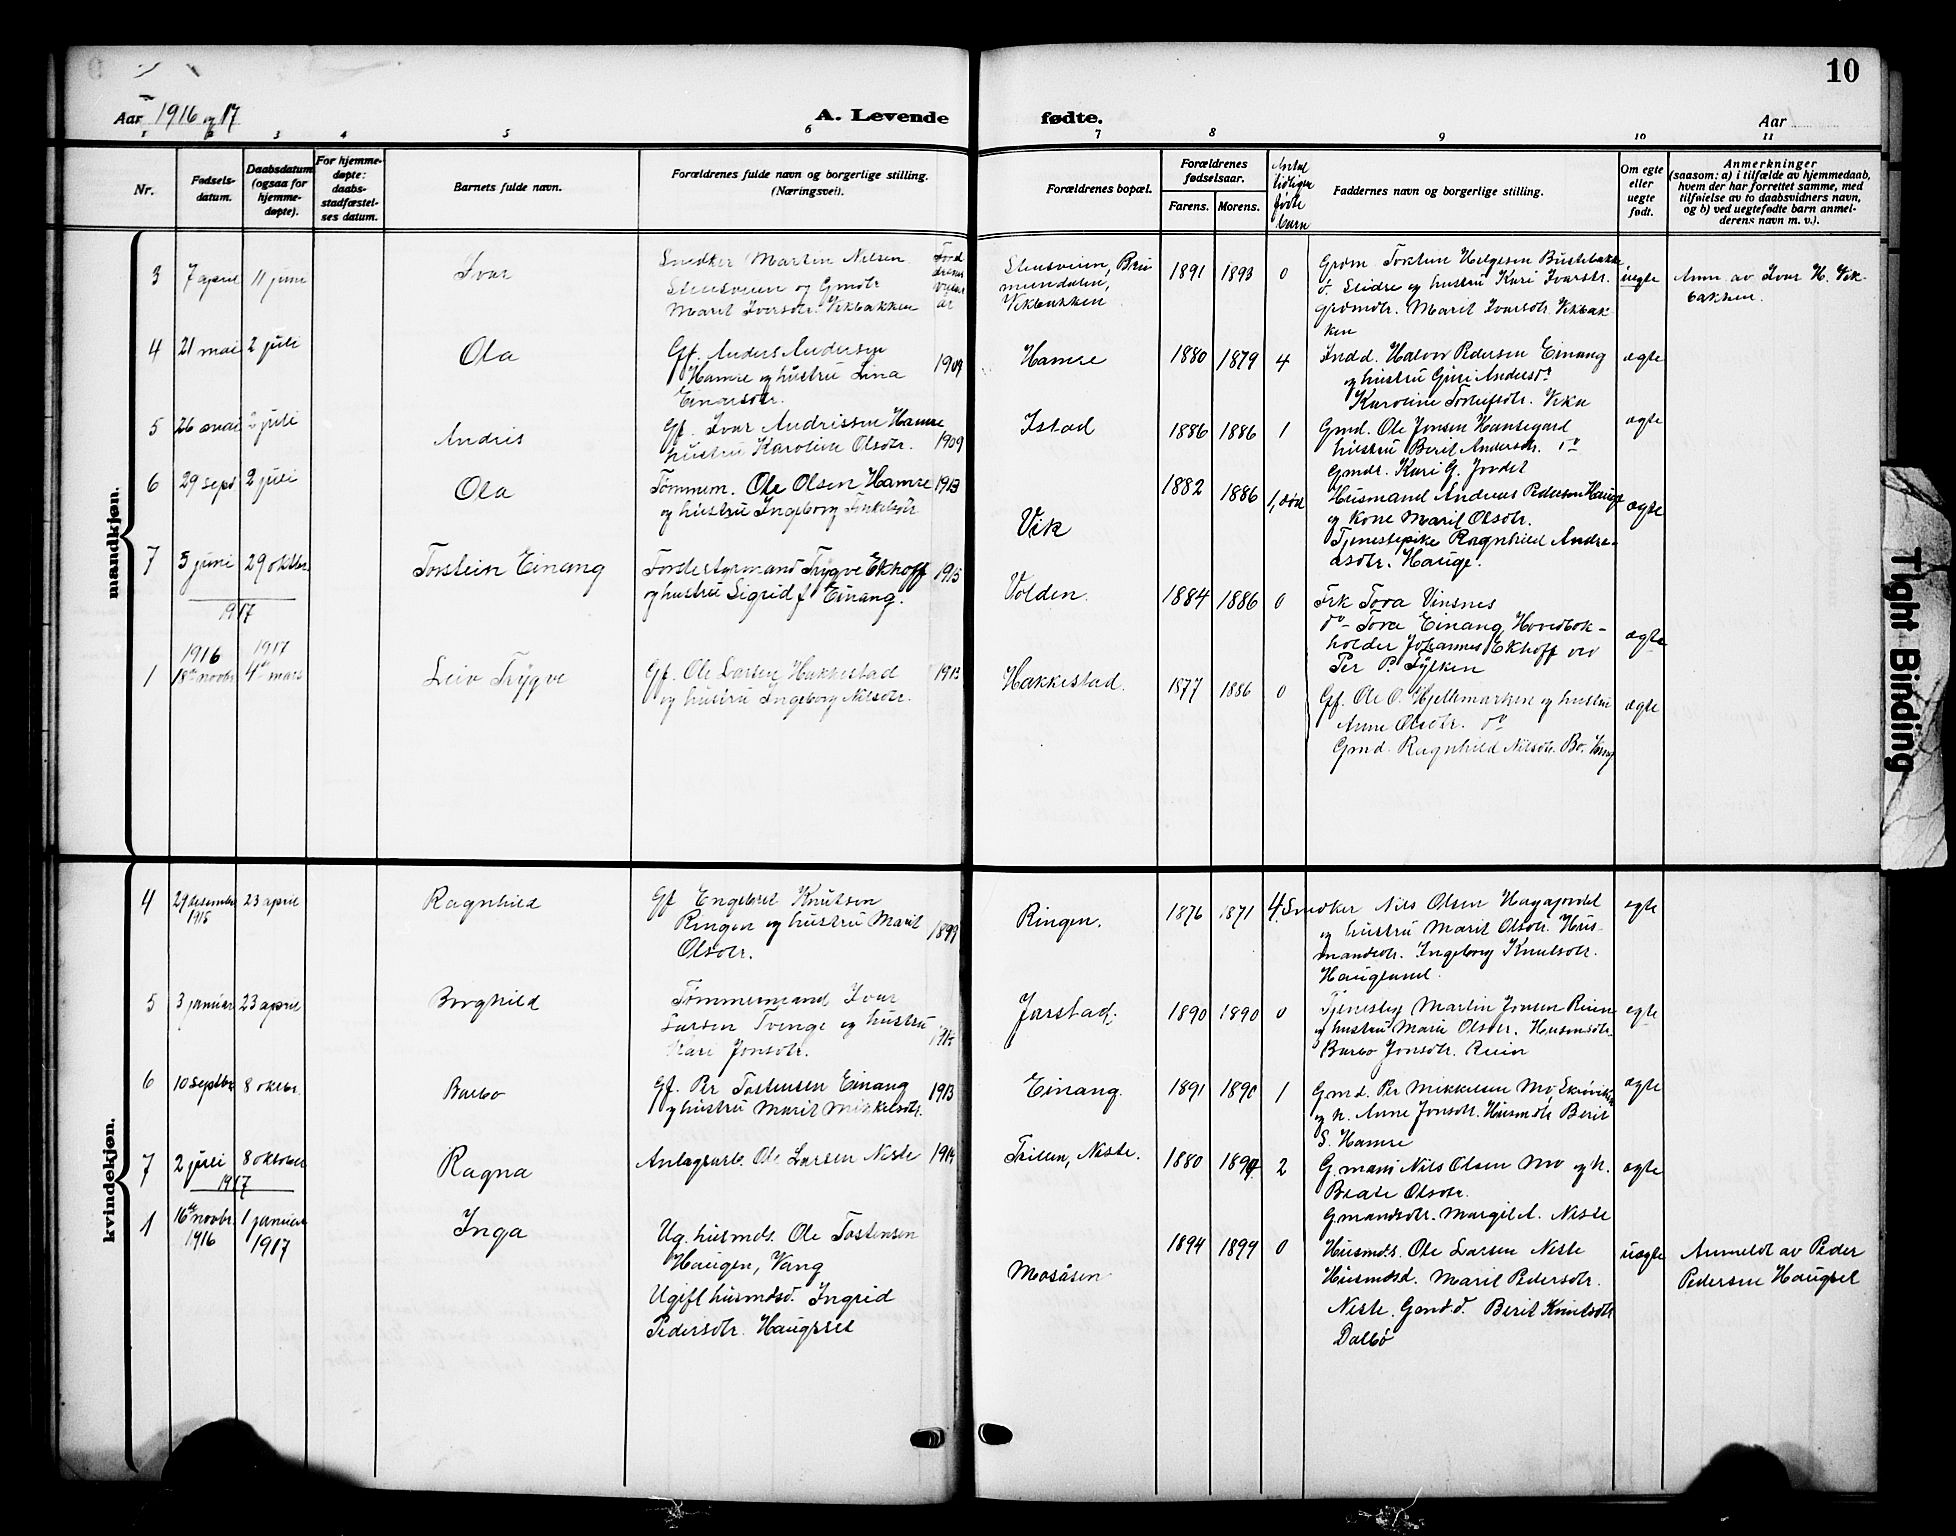 10
Aar 1916 og 17
A. Levende fødte.
Aar
1 2 3 4 5 6 7 8 9 10 11
Nr.
Fødsels-
datum.
Daabsdatum
(ogsaa for
hjemme-
døpte).
For hjemme-
døpte:
daabs-
stadfæstel-
ses datum.
Barnets fulde navn.
Forældrenes fulde navn og borgerlige stilling.
(Næringsvei).
Forældrenes bopæl.
Forældrenes
fødselsaar.
Farens. Morens.
Antal
tidligere
fødte
barn
Faddernes navn og borgerlige stilling.
Om egte
eller
uegte
født.
Anmerkninger
(saasom: a) i tilfælde av hjemmedaab,
hvem der har forrettet samme, med
tilføielse av to daabsvidners navn,
og b) ved uegtefødte barn anmel-
derens navn m. v.).
mandkjøn.
3 7 april 11 juni Ivar
Snedker Martin Nilsen
Stensveien og Gmdtr
Marit Ivarsdtr. Vikbakken
Stensveien, Bru
munddalen,
Vikbakken
1891 1893 0
Torstein Helgesen
Slidre og hustru Kari Ivarsdtr.
Marit Ivarsdtr. Vikbak-
ken
uegte
Anm av Ivar H. Vik-
bakken.
4 21 mai 2 juli Ola
Gf. Anders Andersen
Hamre og hustru Lina
Einarsdtr.
1909
Hamre
1880 1879 4
Indd. Halvor Pedersen Einang
og hustru Guri Andersdr
Karoline Vika
ægte
5 26 mai 2 juli Andris
Gf. Ivar Andrissen Hamre
hustru Karoline Olsdtr.
1909
Istad
1886 1886 1
Gmd. Ole Jonsen Hansegard
hustru Berit Andersdtr. do
Gmdr. Kari G. Jordet
ægte
6 29 sept 2 juli Ola
Tømmerm. Ole Olsen Hamre
og hustru Ingeborg
1913
Vik
1882 1886 1, død
Husmand Andreas Pedersen Hauge
og Kone Marit Olsdtr.
Tjenestepike Ragnhild Andre-
asdtr. Hauge.
ægte
7 5 juni 29 oktbr Torstein Einang
Forstassmand Trygve Ekhoff
og hustru Sigrid f Einang.
1915
Volden.
1884 1886 0
Frk Tora Vinsnes
do Tora Einang Hovedbok-
holder Johannes Ekhoff ved
Per P. Fylken
ægte
1917
1 1916 18de novbr 1917 4de mars Leiv Trygve
Gf. Ole Larsen Hakkestad
og hustru Ingeborg Nilsdtr.
1913
Hakkestad.
1877 1886 0
Gf. Ole O. Hjeltemarken og hustru
Anne Olsdtr. do
Gmd. Ragnhild Nilsdtr. Bø. Vang
ægte
kvindekjøn.
4 29 desember 1915 23 april Ragnhild
Gf Engebret Knutsen
Ringen og hustru Marit
Olsdtr.
1899
Ringen.
1876 1871 4
Snedker Nils Olsen Hagajordet
og hustru Marit Olsdtr. Hus-
mandsdtr. Ingeborg Knutsdtr.
Haugland.
egte
5 3 januar 23 april Borghild
Tømmermand Ivar
Larsen Tvenge og hustru
Kari Jonsdtr.
1915
Jarstad.
1890 1890 0
Martin Jonsen
og hustru Marie Olsdtr. Husmdsdtr.
Barbo Jonsdtr.
egte
6 10 septbr 8 oktbr. Barbo
Gf. Per Tostensen Einang
og hustru Marit Mikkelsdtr.
1913
Einang.
1891 1890 1
Gmd. Per Mikkelsen Mo,
og h. Anne Jonsdtr. Husmdtr Berit
S. Hamre
ægte
7 2 juli 8 oktober Ragna
Anlægsarb. Ole Larsen Neste
1914
Neste.
1880 1894 2
G.mand Nils Olsen Mo og h.
Beate Olsdtr.
Gmandsdtr. Margit A. Neste
ægte
1917
1 16de novbr. 1916 1 januar 1917 Inga
Ug. husmds. Ole Tostensen
Haugen, Vang
Ugift husmdsd. Ingrid
Pedersdtr. Haugset
Mosåsen
1894 1899 0
Husmds. Ole Larsen Neste
Husmdsd. Marit Pedersdtr.
Neste. Gmd.d. Berit Knutsdtr
Dalbø
uægte
Anmeldt av Peder
Pedersen Haugset
Tight Binding